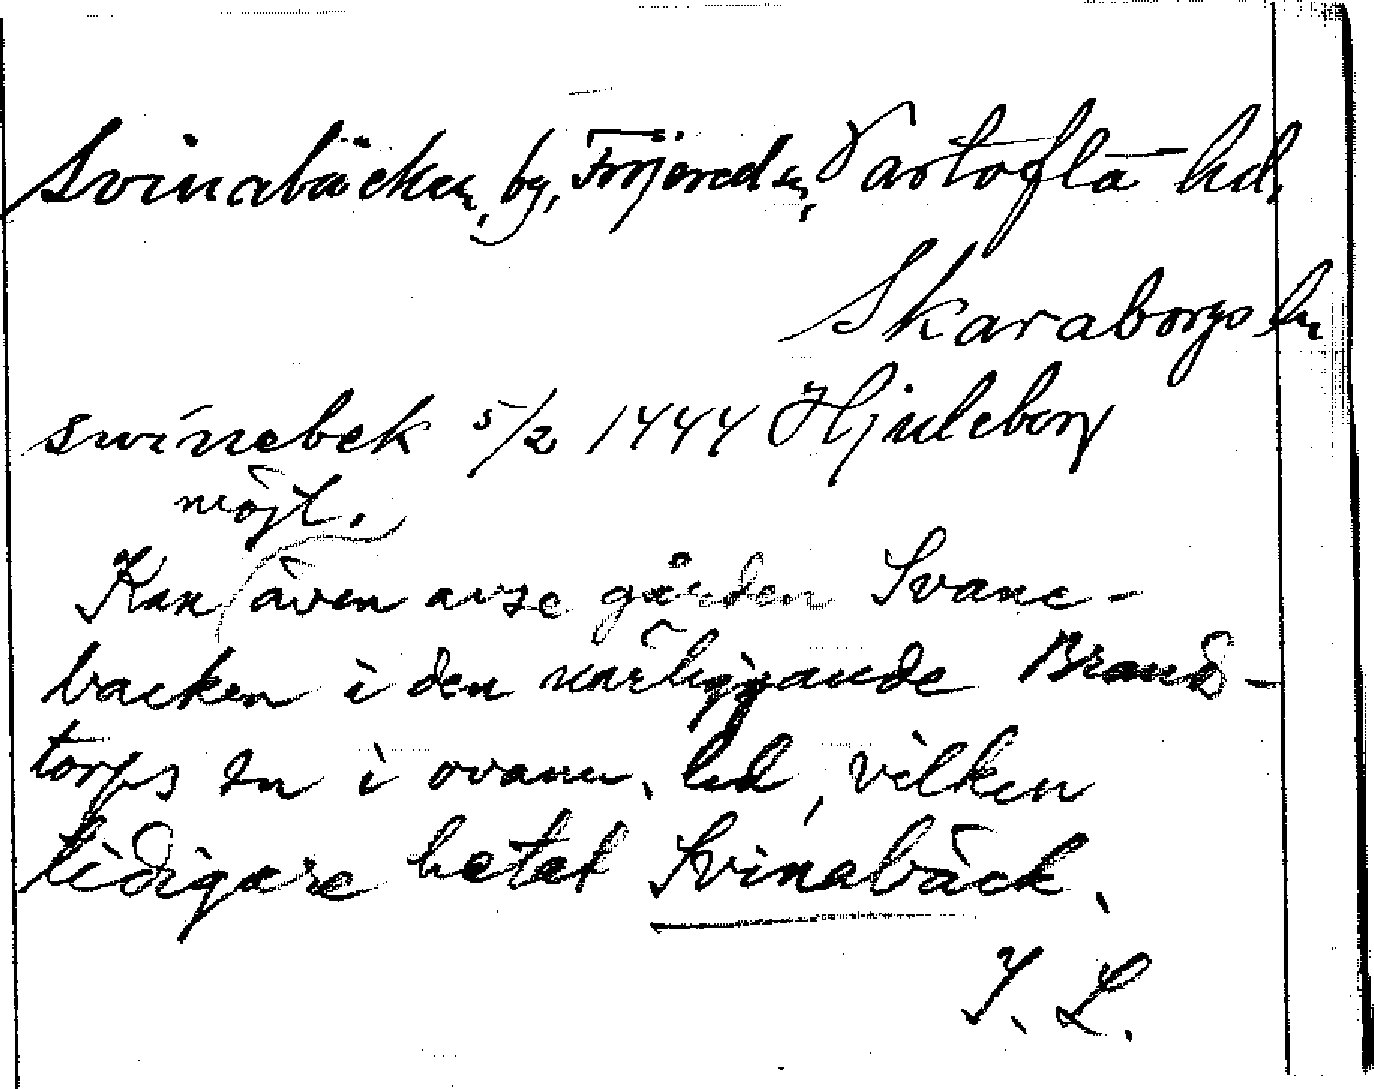 Svinabäcken, by, Fröjereds sn, Vartofta hd.
Skaraborgs ln
swinebek 5/2 1444 Hjuleborg
möjl.
Kan även avse gården Svane-
backen i den närliggande Brands-
torps sn i ovann. hd, vilken
tidigare hetat Svinabäck.
I. L.